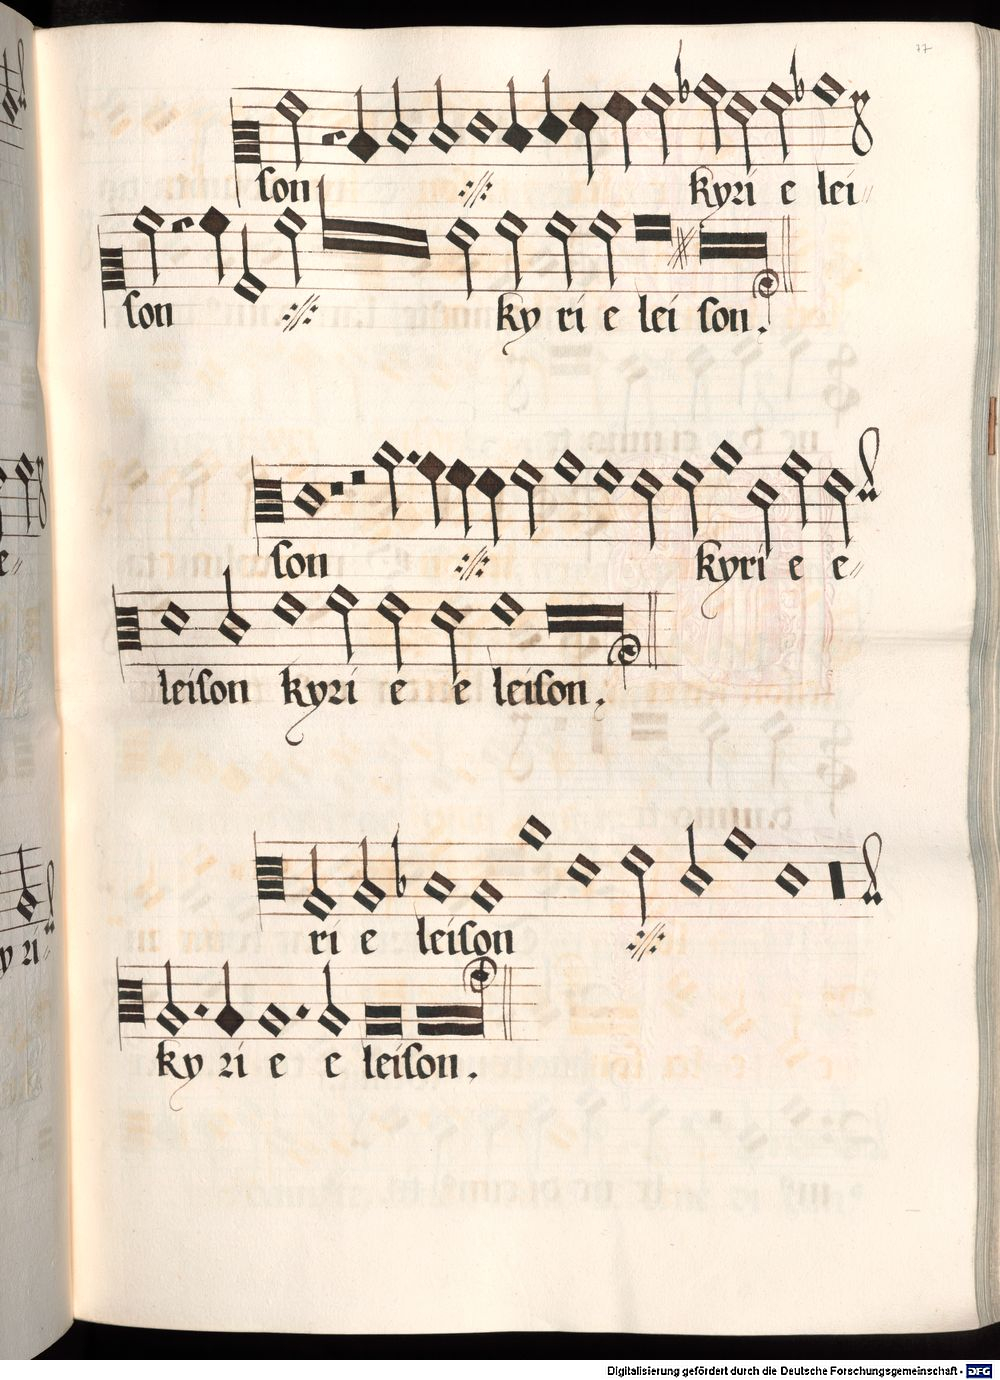 77
son :||: kyri e lei=
son :||: ky ri e lei son.
son :||: kyri e e=
leison kyri e e leison.
ri e leison :||:
ky ri e e leison.
e=
y ri=
Digitalisierung gefördert durch die Deutsche Forschungsgemeinschaft - DFG